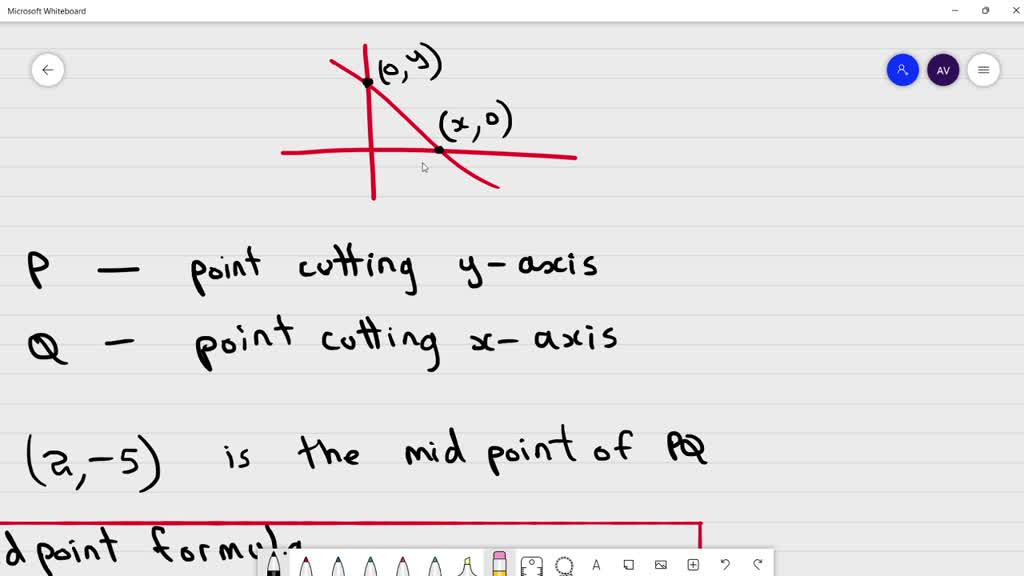 Microsoft Whiteboard
AV
(0,y)
(x,0)
P — point cutting y-axis
Q — point cutting x-axis
(2,-5) is the mid point of PQ
d point formula
A